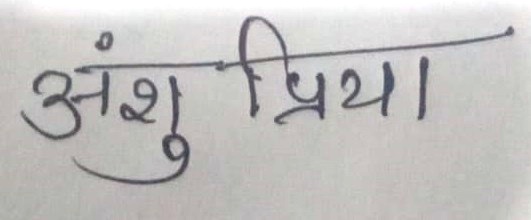 अंशु प्रिया